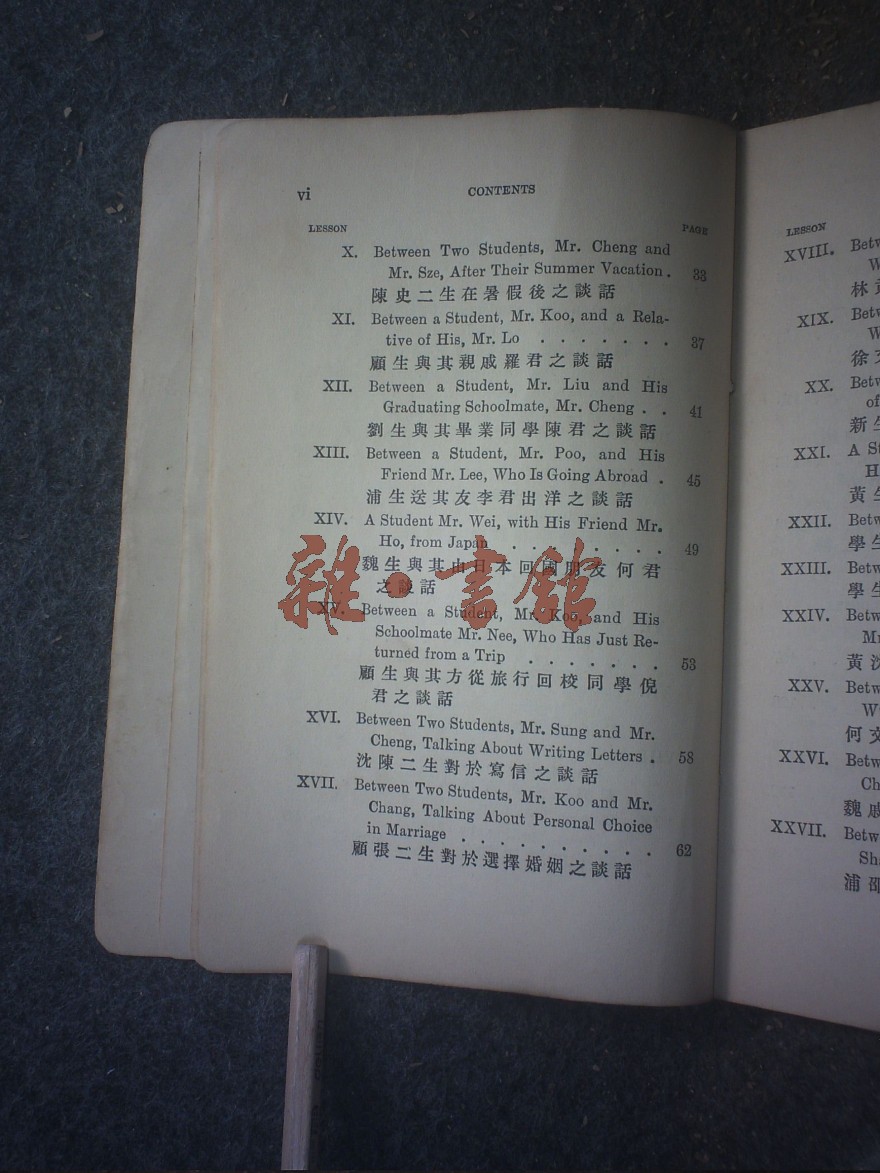 vi
CONTENTS
LESSON
PAGE
X. Between Two Students, Mr. Cheng and
Mr. Sze, After Their Summer Vacation . 33
陳史二生在暑假後之談話
XI. Between a Student, Mr. Koo, and a Rela-
tive of His, Mr. Lo . . . . . . . 37
顧生與其親戚羅君之談話
XII. Between a Student, Mr. Liu and His
Graduating Schoolmate, Mr. Cheng . . 41
劉生與其畢業同學陳君之談話
XIII. Between a Student, Mr. Poo, and His
Friend Mr. Lee, Who Is Going Abroad . 45
浦生送其友李君出洋之談話
XIV. A Student Mr. Wei, with His Friend Mr.
Ho, from Japan . . . . . . . . 49
魏生與其由日本回國朋友何君
之談話
XV. Between a Student, Mr. Koo, and His
Schoolmate Mr. Nee, Who Has Just Re-
turned from a Trip . . . . . . . 53
顧生與其方從旅行回校同學倪
君之談話
XVI. Between Two Students, Mr. Sung and Mr.
Cheng, Talking About Writing Letters . 58
沈陳二生對於寫信之談話
XVII. Between Two Students, Mr. Koo and Mr.
Chang, Talking About Personal Choice
in Marriage . . . . . . . . . . 62
顧張二生對於選擇婚姻之談話
雜·書館
LESSON
XVIII. Bet
W
林
XIX. Betw
W
徐
XX. Betw
of
新生
XXI. A St
H
黃生
XXII. Betw
學生
XXIII. Betw
學生
XXIV. Betw
Mr
黃沈
XXV. Betw
W
何文
XXVI. Betw
Ch
魏戚
XXVII. Betwe
Sha
浦邵